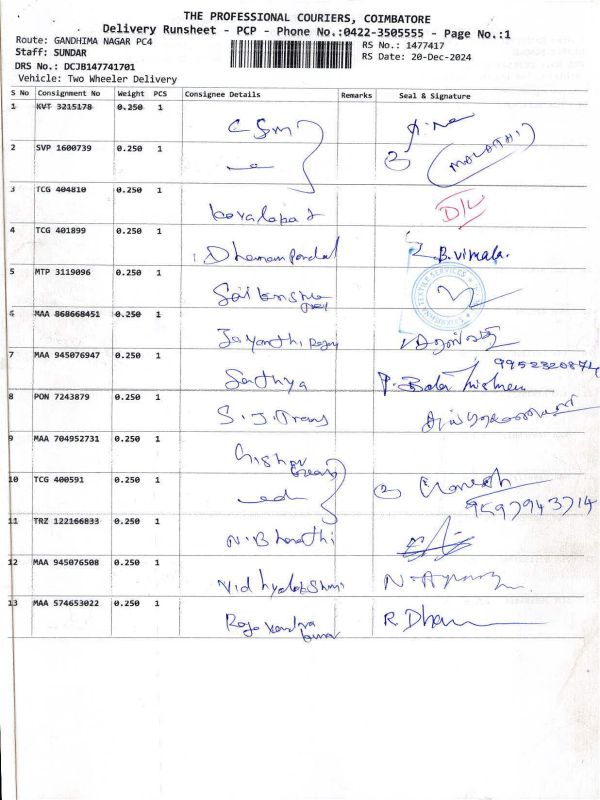 THE PROFESSIONAL COURIERS, COIMBATORE
Delivery Runsheet - PCP - Phone No.:0422-3505555 - Page No.:1
Route: GANDHIMA NAGAR PC4
RS No.: 1477417
Staff: SUNDAR
RS Date: 20-Dec-2024
DRS No.: DCJB147741701
Vehicle: Two Wheeler Delivery
S No Consignment No Weight PCS Consignee Details Remarks Seal & Signature
1 KVT 3215178 0.250 1
2 SVP 1600739 0.250 1 2 MALATHI
3 TCG 404810 0.250 1 D/L
4 TCG 401899 0.250 1 B. Vimala.
5 MTP 3119096 0.250 1
TEXTILE SERVICES
6 MAA 868668451 0.250 1
Jayanthi
7 MAA 945076947 0.250 1 9952320874
Sathya P. Bala
8 PON 7243879 0.250 1
S. J. Trans
9 MAA 704952731 0.250 1
Kishor
10 TCG 400591 0.250 1 2
9597943714
11 TRZ 122166833 0.250 1
N. Bharathi
12 MAA 945076508 0.250 1
13 MAA 574653022 0.250 1
R Dhan